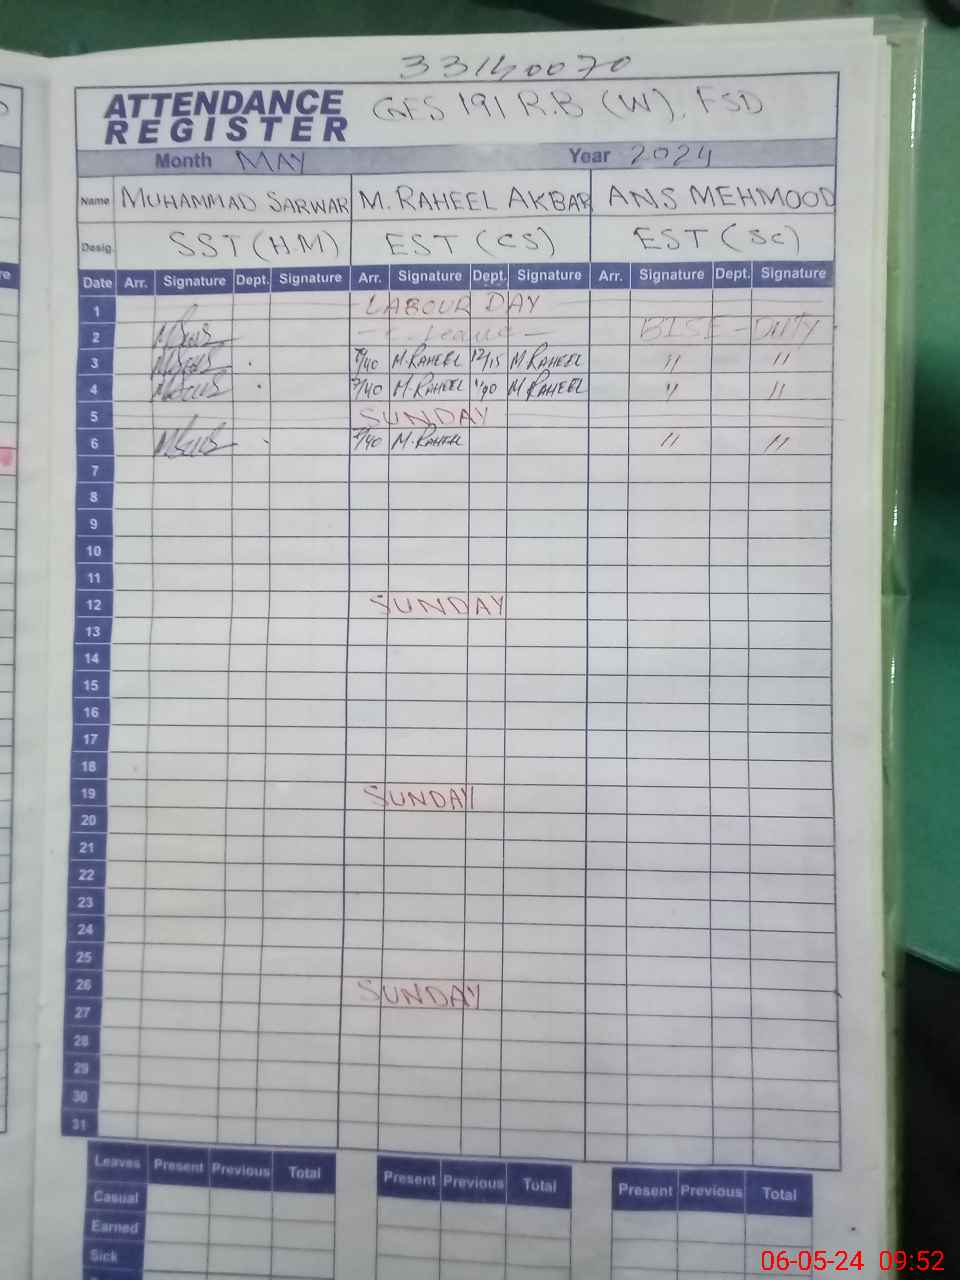 33140070
ATTENDANCE REGISTER GES 191 R.B (W), FSD
Month MAY Year 2024
Name MUHAMMAD SARWAR M. RAHEEL AKBAR ANS MEHMOOD
Desig. SST (H.M) EST (CS) EST (SC)
Date Arr. Signature Dept. Signature Arr. Signature Dept. Signature Arr. Signature Dept. Signature
1 LABOUR DAY
2 - c. Leave - BISE - DUTY
3 7/40 M.RAHEEL 12/15 M RAHEEL " "
4 7/40 M.RAHEEL M RAHEEL " "
5 SUNDAY
6 7/40 M.RAHEEL " "
7
8
9
10
11
12 SUNDAY
13
14
15
16
17
18
19 SUNDAY
20
21
22
23
24
25
26 SUNDAY
27
28
29
30
31
Leaves Present Previous Total Present Previous Total Present Previous Total
Casual
Earned
Sick
06-05-24 09:52